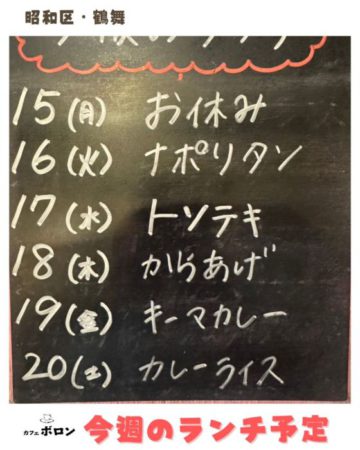 昭和区・鶴舞
15(月) お休み
16(火) ナポリタン
17(水) トンテキ
18(木) からあげ
19(金) キーマカレー
20(土) カレーライス
カフェ ボロン
今週のランチ予定